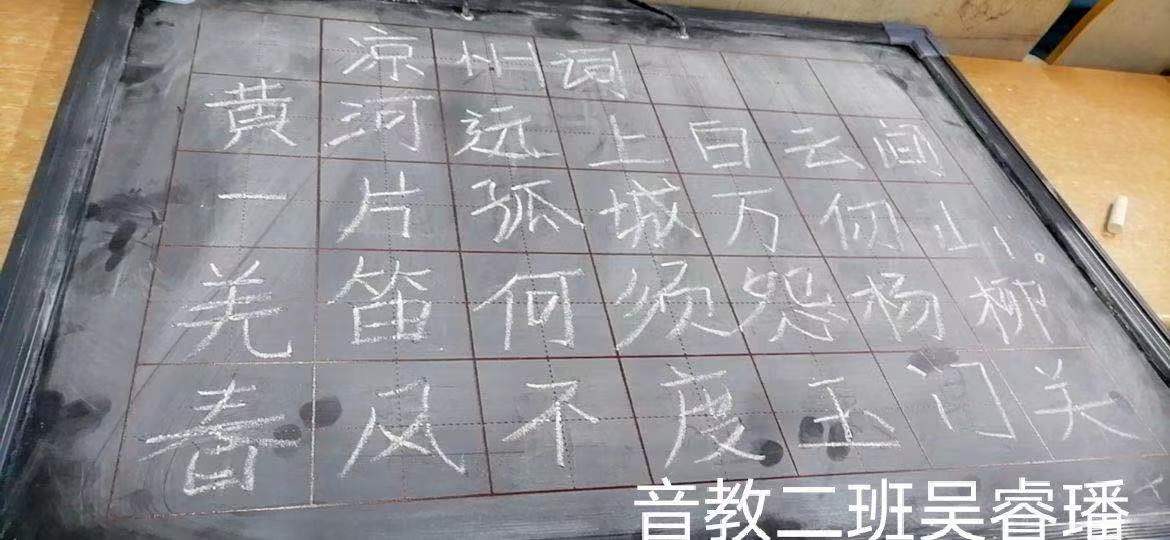 凉州词
黄河远上白云间
一片孤城万仞山。
羌笛何须怨杨柳
春风不度玉门关
音教二班吴睿璠